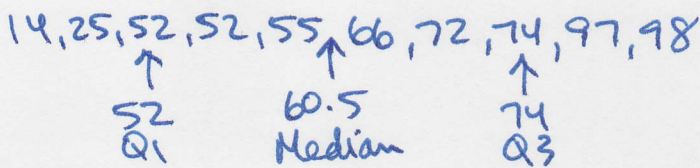 14, 25, 52, 52, 55, 66, 72, 74, 97, 98
52 60.5 74
Q1 Median Q3